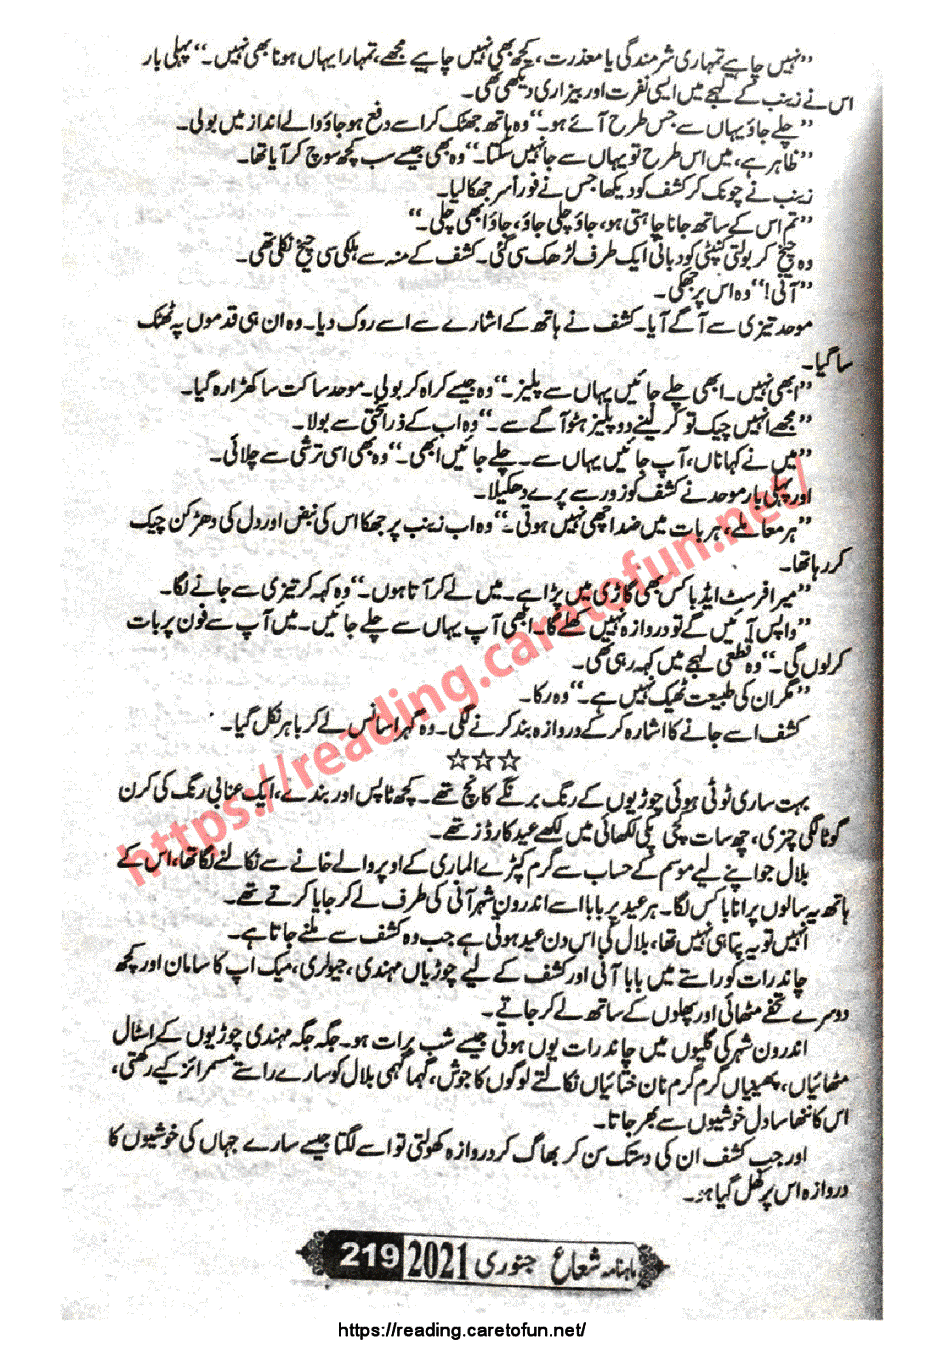 ”نہیں چاہیے تمہاری شرمندگی یا معذرت، کچھ بھی نہیں چاہیے مجھے، تمہارا یہاں ہونا بھی نہیں۔“ پہلی بار
اس نے زینب کے لہجے میں ایسی نفرت اور بیزاری دیکھی تھی۔
”چلے جاؤ یہاں سے جس طرح آئے ہو۔“ وہ ہاتھ جھٹک کر اسے دفع ہو جاؤ والے انداز میں بولی۔
”ظاہر ہے، میں اس طرح تو یہاں سے جا نہیں سکتا۔“ وہ بھی جیسے سب کچھ سوچ کر آیا تھا۔
زینب نے چونک کر کشف کو دیکھا، جس نے فوراً سر جھکا لیا۔
”تم اس کے ساتھ جانا چاہتی ہو، جاؤ چلی جاؤ، جاؤ ابھی چلی۔“
وہ چیخ کر بولتی کنپٹی کو دباتی ایک طرف لڑھک سی گئی۔ کشف کے منہ سے ہلکی سی چیخ نکلی تھی۔
”آنی!“ وہ اس پر جھکی۔
موحد تیزی سے آگے آیا۔ کشف نے ہاتھ کے اشارے سے اسے روک دیا۔ وہ ان ہی قدموں پہ ٹھٹک
سا گیا۔
”ابھی نہیں۔ ابھی چلے جائیں یہاں سے پلیز۔“ وہ جیسے کراہ کر بولی۔ موحد ساکت سا کھڑا رہ گیا۔
”مجھے انہیں چیک تو کر لینے دو پلیز ہٹو آگے سے۔“ وہ اب کے ذرا سختی سے بولا۔
”میں نے کہا ناں، آپ جائیں یہاں سے۔ چلے جائیں ابھی۔“ وہ بھی اسی ترشی سے چلائی۔
اور پہلی بار موحد نے کشف کو زور سے پرے دھکیلا۔
”ہر معاملے، ہر بات میں ضد اچھی نہیں ہوتی۔“ وہ اب زینب پر جھکا اس کی نبض اور دل کی دھڑکن چیک
کر رہا تھا۔
”میرا فرسٹ ایڈ باکس بھی گاڑی میں پڑا ہے۔ میں لے کر آتا ہوں۔“ وہ کہہ کر تیزی سے جانے لگا۔
”واپس آئیں گے تو دروازہ نہیں کھلے گا۔ ابھی آپ یہاں سے چلے جائیں۔ میں آپ سے فون پر بات
کر لوں گی۔“ وہ قطعی لہجے میں کہہ رہی تھی۔
”مگر ان کی طبیعت ٹھیک نہیں ہے۔“ وہ رکا۔
کشف اسے جانے کا اشارہ کر کے دروازہ بند کرنے لگی۔ وہ گہرا سانس لے کر باہر نکل گیا۔
☆☆☆
بہت ساری ٹوٹی ہوئی چوڑیوں کے رنگ برنگے کانچ تھے۔ کچھ ٹاپس اور بندے، ایک عنابی رنگ کی کرن
گوٹا لگی چنری، چھ سات کچی پکی لکھائی میں لکھے عید کارڈز تھے۔
بلال جو اپنے لیے موسم کے حساب سے گرم کپڑے الماری کے اوپر والے خانے سے نکالنے لگا تھا، اس کے
ہاتھ یہ سالوں پرانا باکس لگا۔ ہر عید پر بابا اسے اندرون شہر آنی کی طرف لے کر جایا کرتے تھے۔
انہیں تو یہ پتا ہی نہیں تھا، بلال کی اس دن عید ہوتی ہے جب وہ کشف سے ملنے جاتا ہے۔
چاند رات کو راستے میں بابا آنی اور کشف کے لیے چوڑیاں مہندی، جیولری، میک اپ کا سامان اور کچھ
دوسرے تحفے مٹھائی اور پھلوں کے ساتھ لے کر جاتے۔
اندرون شہر کی گلیوں میں چاند رات یوں ہوتی جیسے شب برات ہو۔ جگہ جگہ مہندی چوڑیوں کے اسٹال
مٹھائیاں، پھینیاں گرم گرم نان ختائیاں نکالتے لوگوں کا جوش، گہما گہمی بلال کو سارے راستے مسمرائز کیے رکھتی،
اس کا ننھا سا دل خوشیوں سے بھر جاتا۔
اور جب کشف ان کی دستک سن کر بھاگ کر دروازہ کھولتی تو اسے لگتا جیسے سارے جہاں کی خوشیوں کا
دروازہ اس پر کھل گیا ہو۔
ماہنامہ شعاع جنوری 2021 219
https://reading.caretofun.net/
https://reading.caretofun.net/